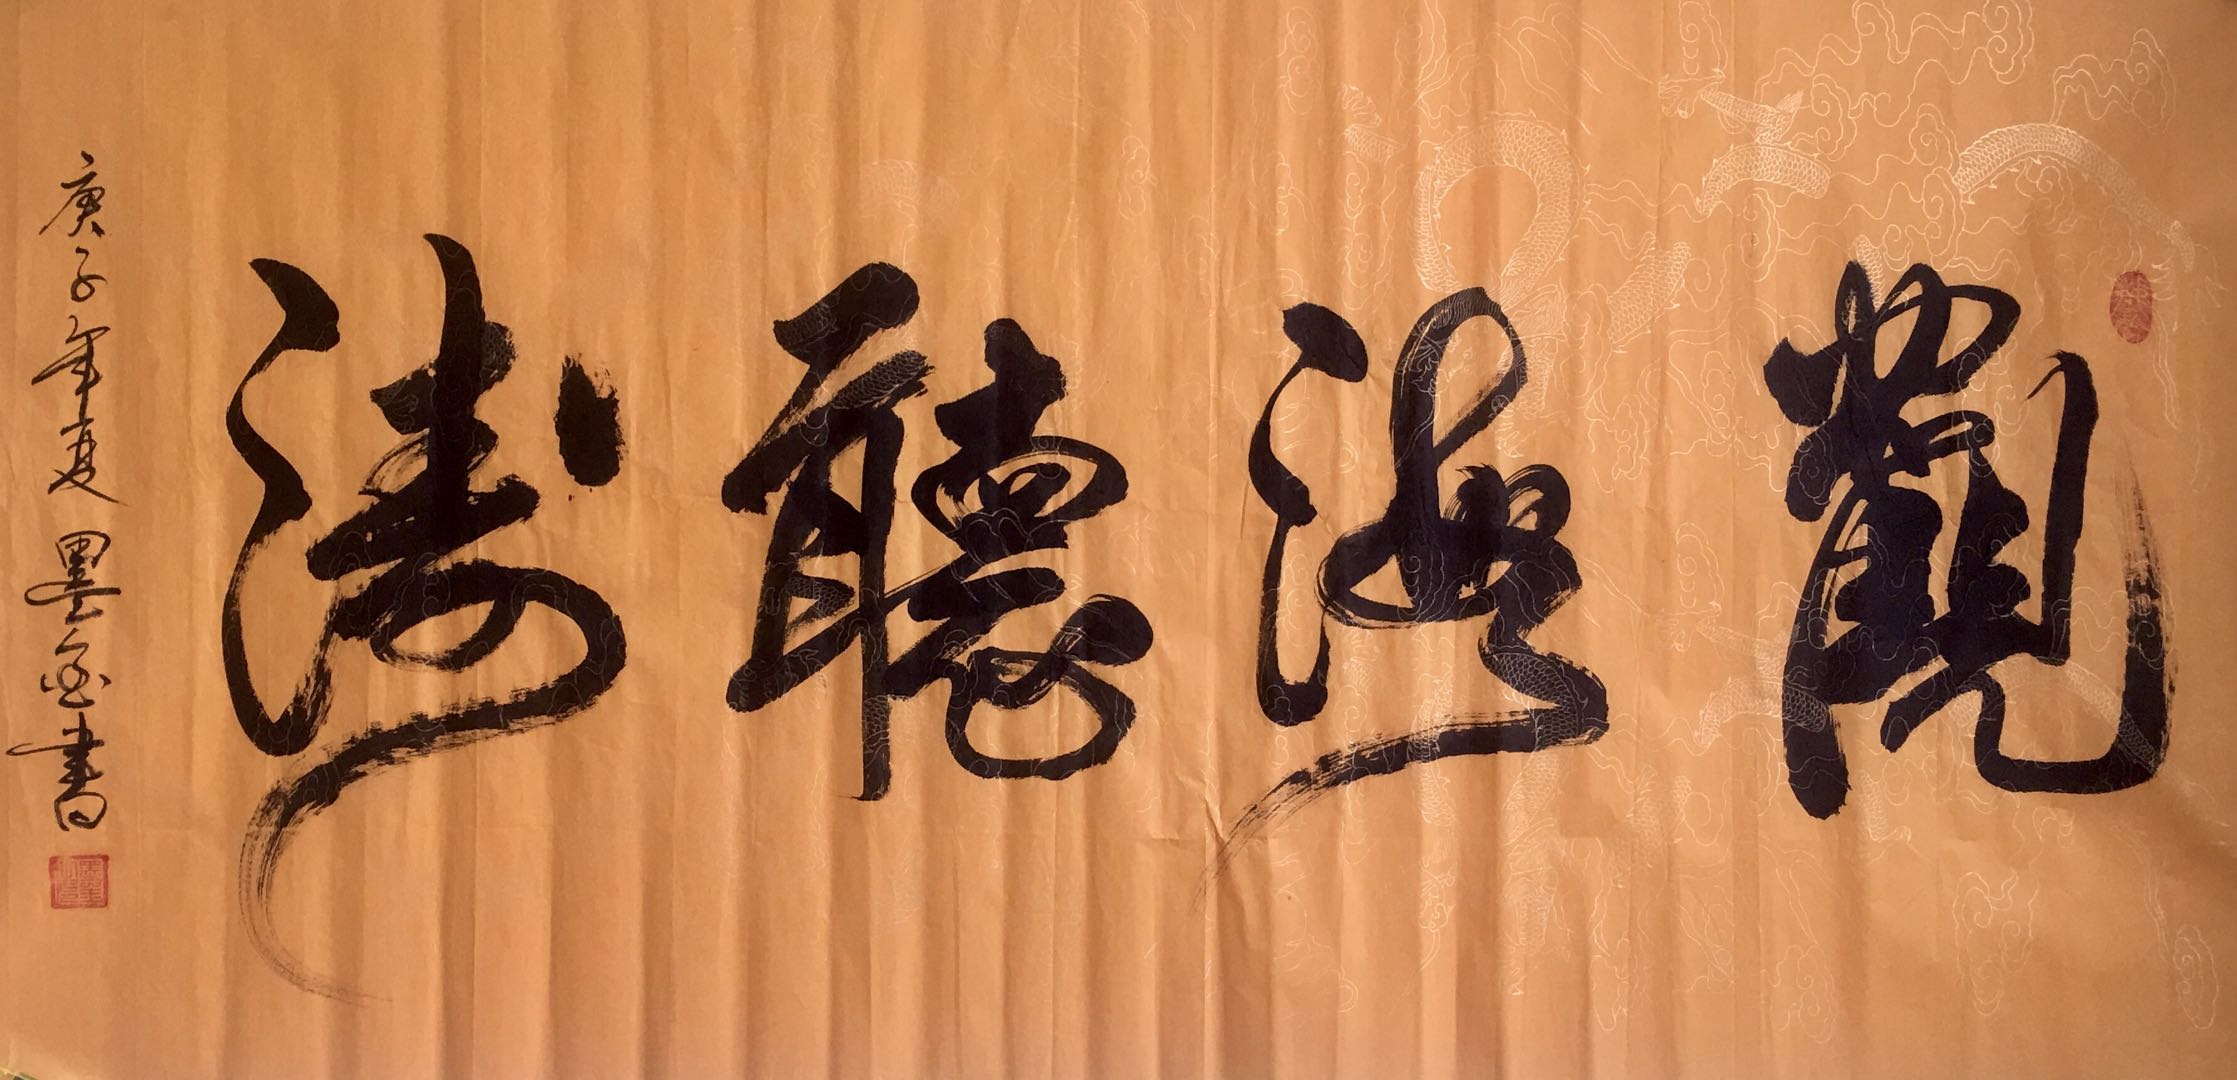 觀海聽濤
庚子年夏墨金書